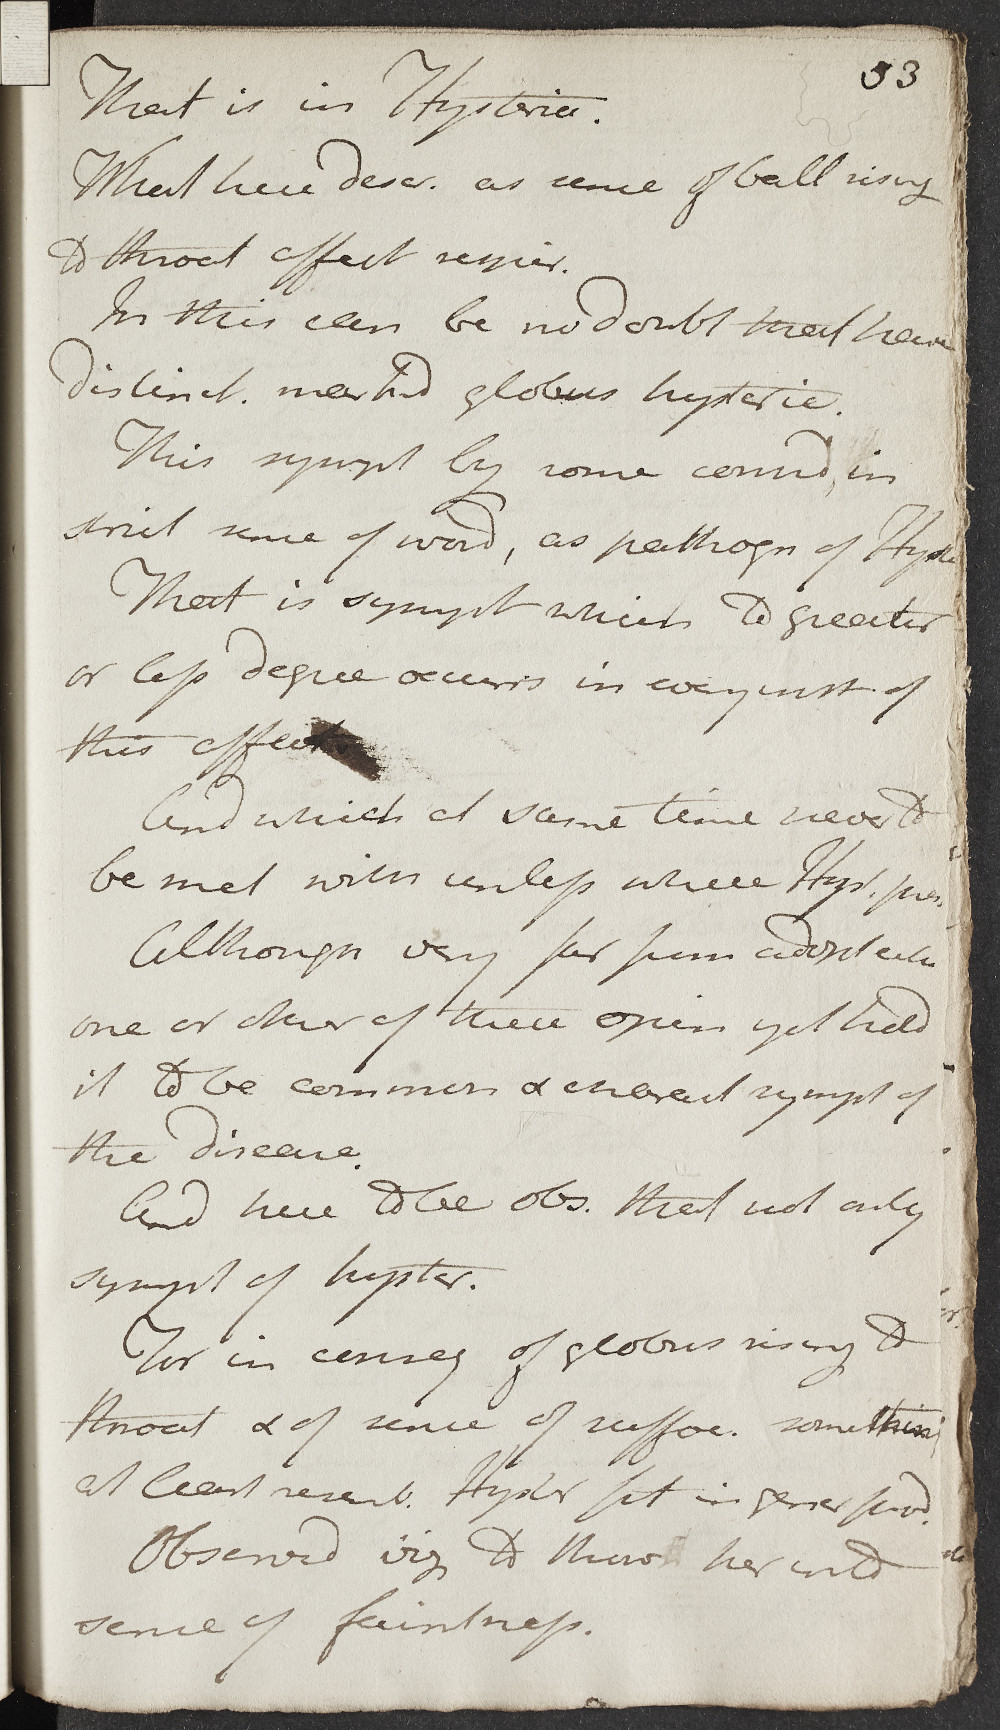 53
That is in Hysteria.
What here descr. as sense of ball rising
to throat affect respir.
In this can be no doubt that have
distinct. marked globus hysteric.
This sympt by some consid, in
strict sense of word, as pathogn of Hyste
That is sympt which to greater
or less degree occurs in every inst. of
this affect
And which at same time never to
be met with unless where Hyst. pres.
Although very far from adopt
one or other of these opin yet held
it to be common & charact sympt of
the disease.
And here to be obs. that not only
sympt of hyster.
For in conseq of globus rising to
throat & of sense of suffoc. something
at least resemb. Hyster fit in gener prod.
Observed viz to throw her into
sense of faintness.